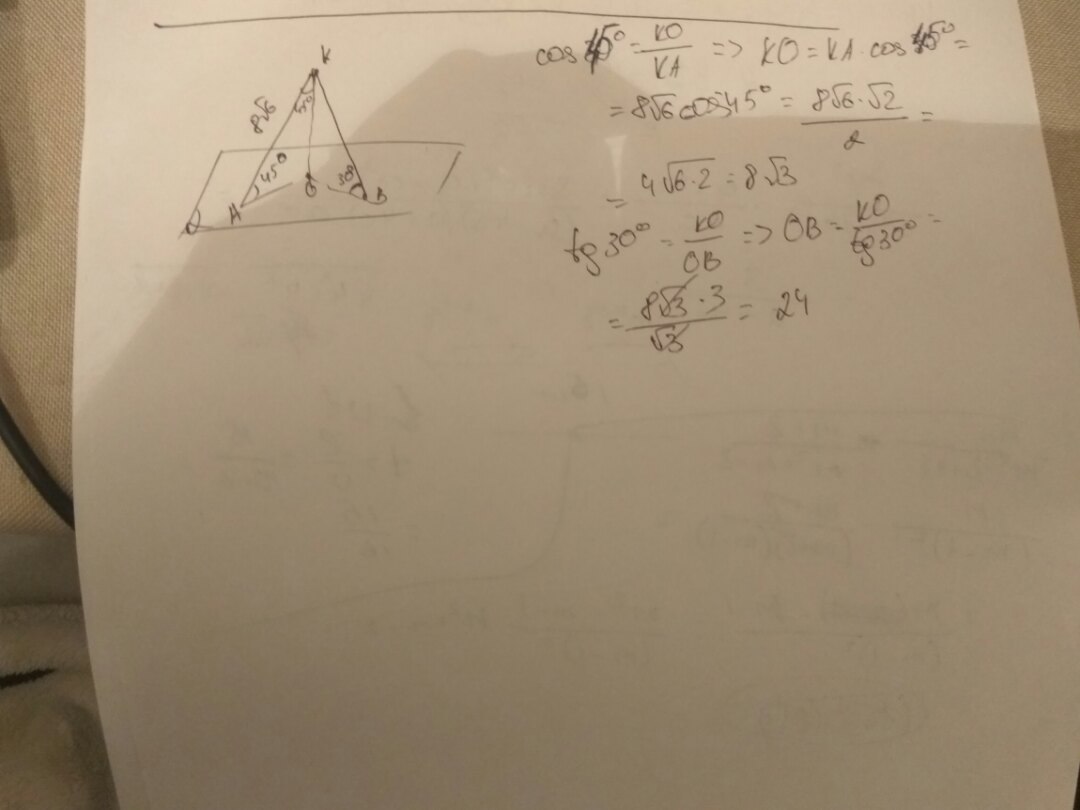 K
8√6
45°
45°
30°
A
O
B
α
cos 45° = KO/KA => KO = KA · cos 45° =
= 8√6 cos 45° = 8√6 · √2/2 =
= 4√6·2 = 8√3
tg 30° = KO/OB => OB = KO/tg 30° =
= 8√3 · 3/√3 = 24